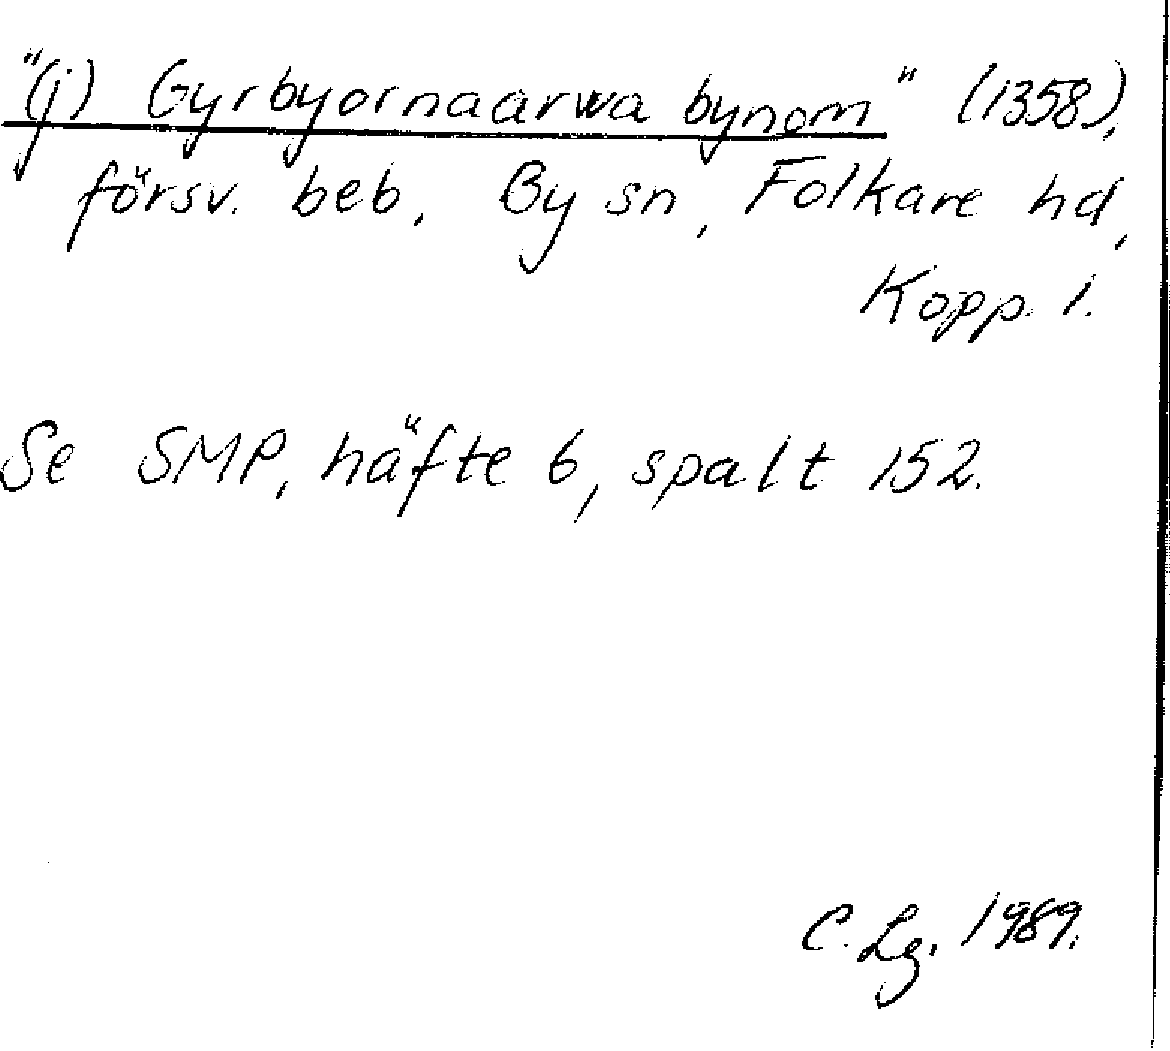 "(j) Gyrbyornaarwa bynom" (1358),
försv. beb., By sn, Folkare hd,
Kopp. l.
Se SMP, häfte 6, spalt 152.
C. Lg. 1989.